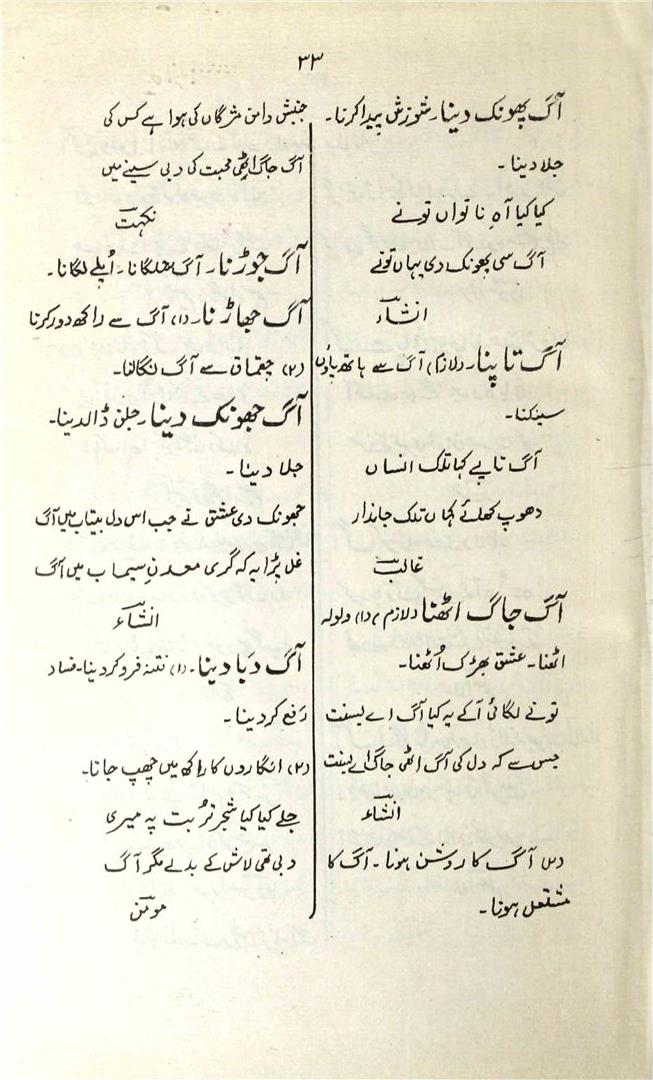 ۳۳
آگ پھونک دینا۔ سوزش پیدا کرنا۔
جلا دینا۔
کیا کیا آہِ ناتواں تونے
آگ سی پھونک دی یہاں تونے
انشاءؔ
آگ تاپنا۔ (لازم) آگ سے ہاتھ پاؤں
سینکنا۔
آگ تاپے کہاں تلک انساں
دھوپ کھائے کہاں تلک جاندار
غالبؔ
آگ جاگ اٹھنا (لازم) (۱) ولولہ
اٹھنا۔ عشق بھڑک اُٹھنا۔
تونے لگائی آکے یہ کیا آگ اے بسنت
جس سے کہ دل کی آگ اٹھی جاگ اے بسنت
انشاءؔ
(۲) آگ کا روشن ہونا۔ آگ کا
مشتعل ہونا۔
جنبش دامن مژگاں کی ہوا ہے کس کی
آگ جاگ اٹھی محبت کی دبی سینے میں
نکہتؔ
آگ جوڑنا۔ آگ سلگانا۔ اُپلے لگانا۔
آگ جھاڑنا۔ (۱) آگ سے راکھ دور کرنا
(۲) چقماق سے آگ نکالنا۔
آگ جھونک دینا۔ جلن ڈالدینا۔
جلا دینا۔
جھونک دی عشق نے جب اس دل بیتاب میں آگ
غل پڑا یہ کہ گری معدنِ سیماب میں آگ
انشاءؔ
آگ دَبا دینا۔ (۱) فتنہ فرو کر دینا۔ فساد
رَفع کر دینا۔
(۲) انگاروں کا راکھ میں چھپ جانا۔
جلے کیا کیا شجر تُربت پہ میری
دبی تھی لاش کے بدلے مگر آگ
مومنؔ